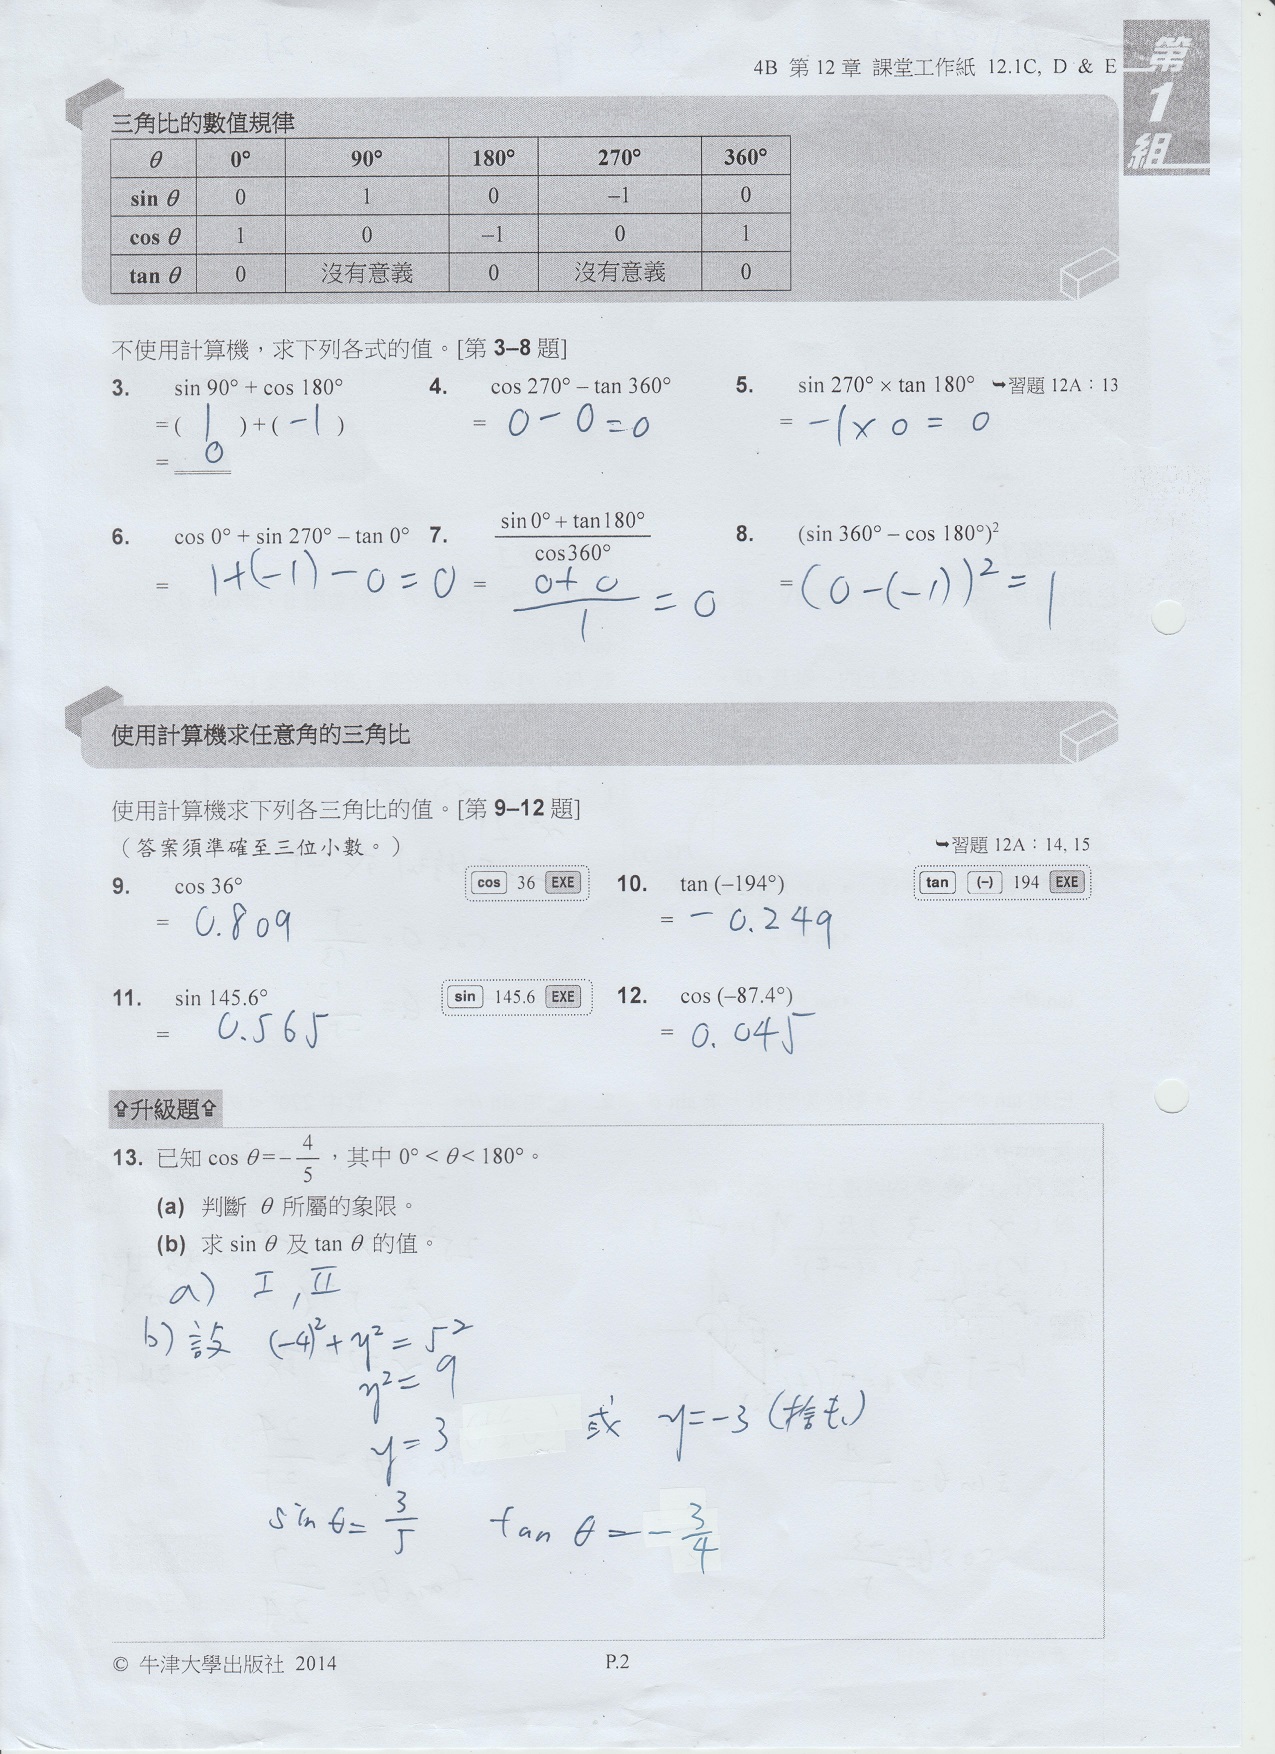 4B 第 12 章 課堂工作紙 12.1C, D & E
第
1
組
三角比的數值規律
θ 0° 90° 180° 270° 360°
sin θ 0 1 0 –1 0
cos θ 1 0 –1 0 1
tan θ 0 沒有意義 0 沒有意義 0
不使用計算機，求下列各式的值。[第 3–8 題]
3. sin 90° + cos 180°
= ( 1 ) + ( -1 )
= 0
4. cos 270° – tan 360°
= 0 - 0 = 0
5. sin 270° × tan 180° ➥習題 12A：13
= -1 × 0 = 0
6. cos 0° + sin 270° – tan 0°
= 1+(-1) - 0 = 0
7. (sin 0° + tan 180°) / cos 360°
= (0+0) / 1 = 0
8. (sin 360° – cos 180°)²
= (0-(-1))² = 1
使用計算機求任意角的三角比
使用計算機求下列各三角比的值。[第 9–12 題]
（答案須準確至三位小數。） ➥習題 12A：14, 15
9. cos 36° cos 36 EXE
= 0.809
10. tan (–194°) tan (–) 194 EXE
= -0.249
11. sin 145.6° sin 145.6 EXE
= 0.565
12. cos (–87.4°)
= 0.045
⇧升級題⇧
13. 已知 cos θ = – 4/5，其中 0° < θ < 180°。
(a) 判斷 θ 所屬的象限。
(b) 求 sin θ 及 tan θ 的值。
a) I , II
b) 設 (-4)² + y² = 5²
y² = 9
y = 3 或 y = -3 (捨去)
sin θ = 3/5 tan θ = - 3/4
© 牛津大學出版社 2014 P.2